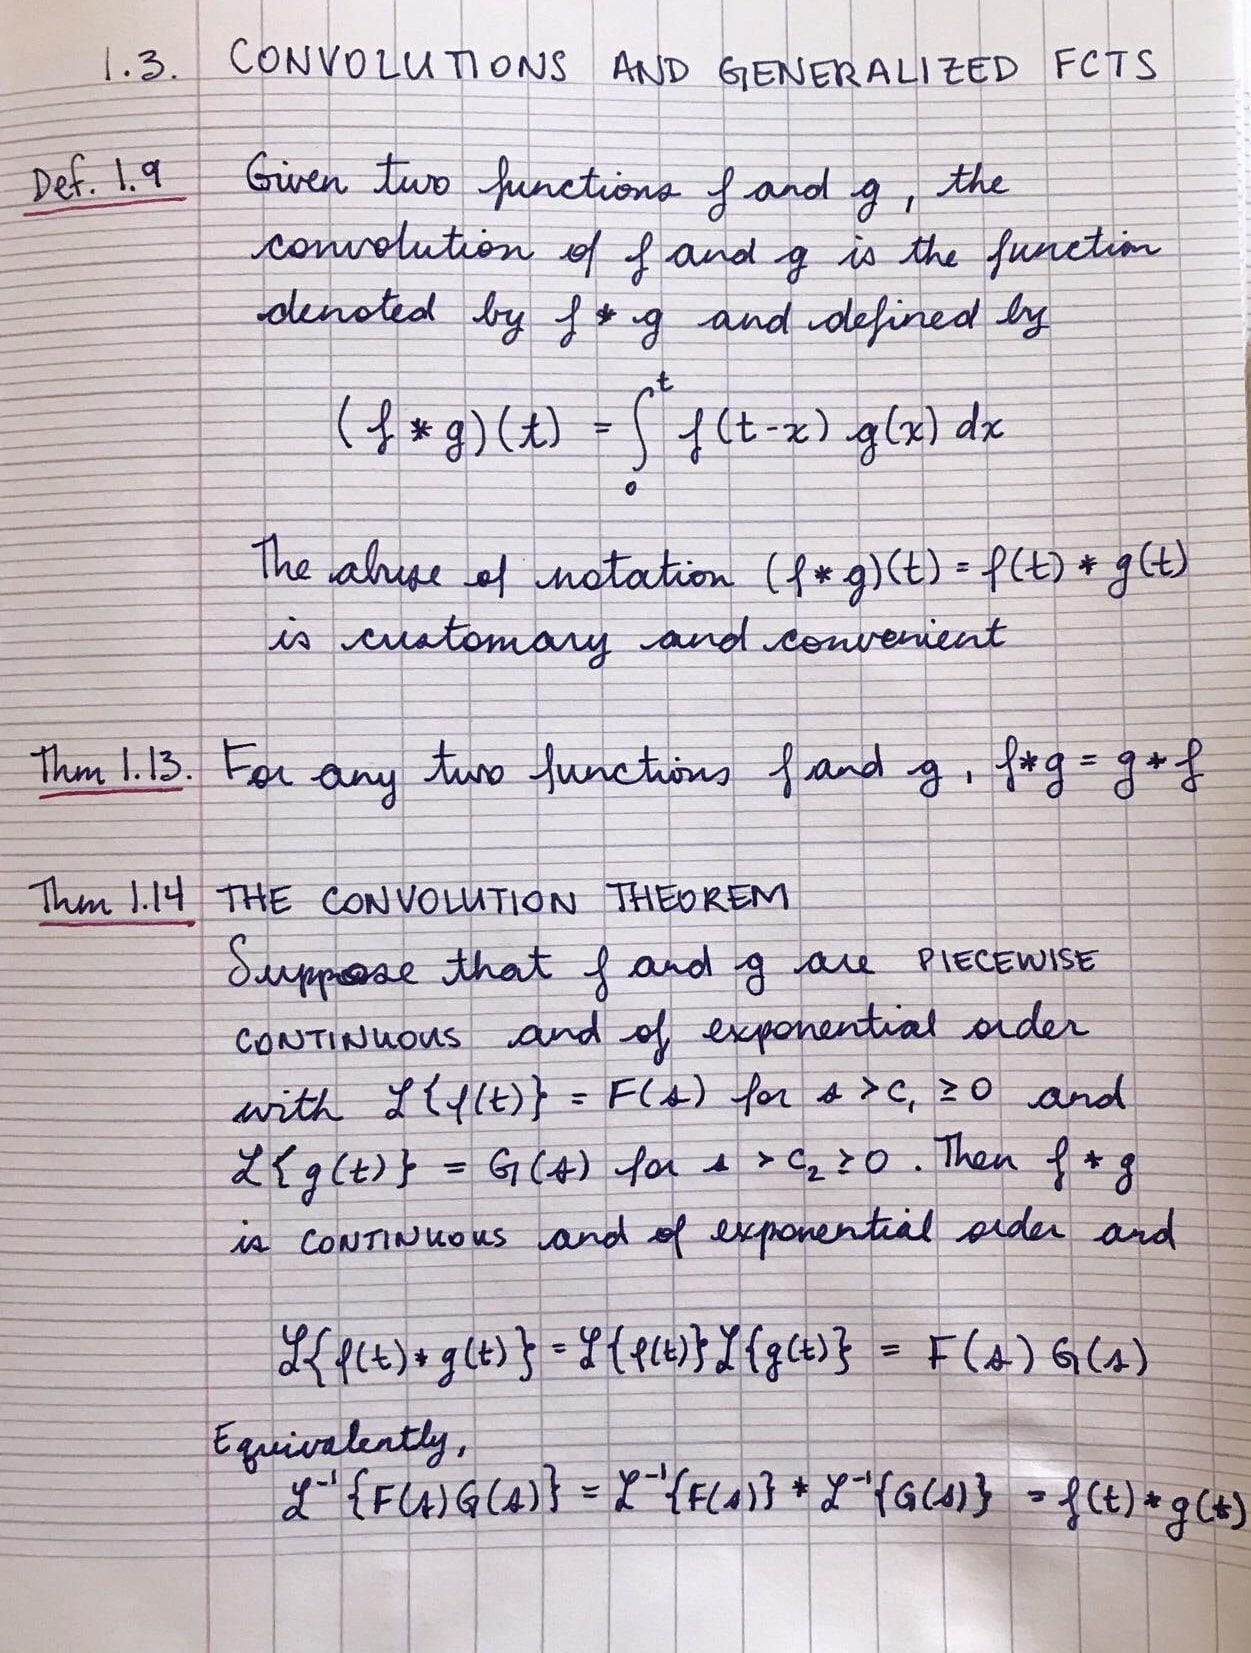 1.3. CONVOLUTIONS AND GENERALIZED FCTS
Def. 1.9 Given two functions f and g, the
convolution of f and g is the function
denoted by f * g and defined by
(f * g)(t) = ∫₀ᵗ f(t-x) g(x) dx
The abuse of notation (f * g)(t) = f(t) * g(t)
is customary and convenient
Thm 1.13. For any two functions f and g, f*g = g*f
Thm 1.14 THE CONVOLUTION THEOREM
Suppose that f and g are PIECEWISE
CONTINUOUS and of exponential order
with ℒ{f(t)} = F(s) for s > c₁ ≥ 0 and
ℒ{g(t)} = G(s) for s > c₂ ≥ 0. Then f * g
is CONTINUOUS and of exponential order and
ℒ{f(t) * g(t)} = ℒ{f(t)} ℒ{g(t)} = F(s) G(s)
Equivalently,
ℒ⁻¹{F(s)G(s)} = ℒ⁻¹{F(s)} * ℒ⁻¹{G(s)} = f(t) * g(t)